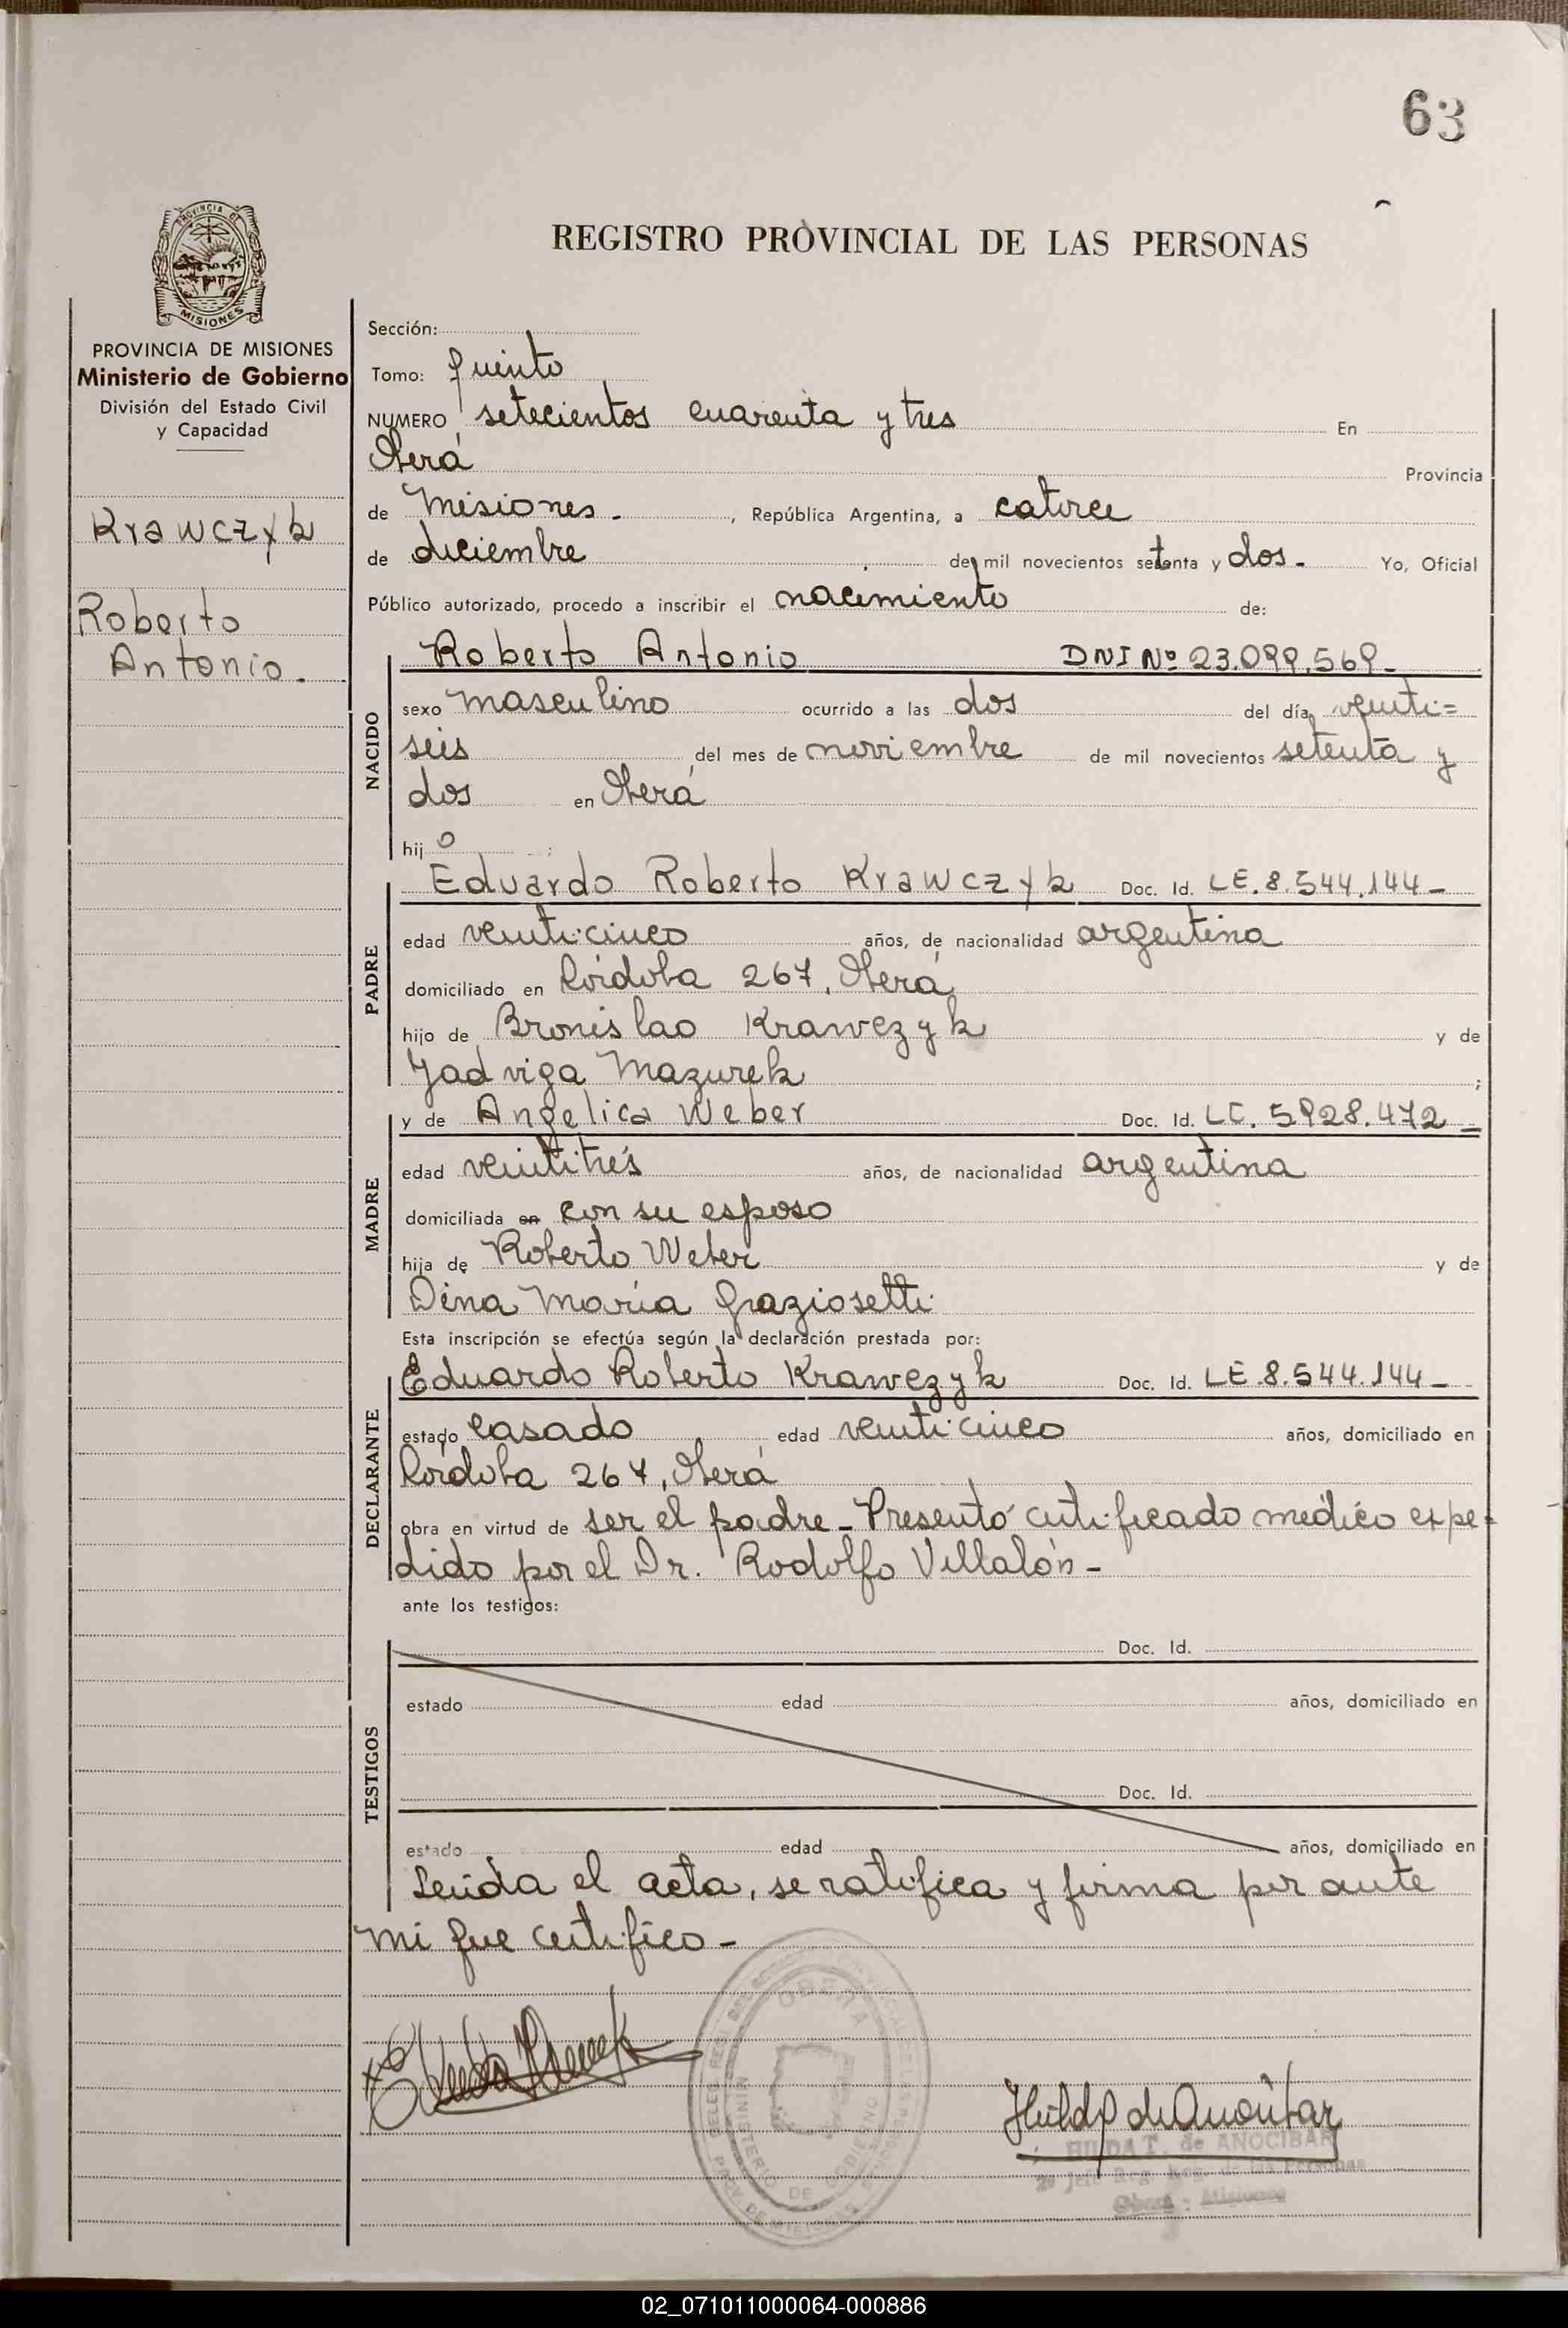 63
PROVINCIA DE
MISIONES
REGISTRO PROVINCIAL DE LAS PERSONAS
PROVINCIA DE MISIONES
Ministerio de Gobierno
División del Estado Civil
y Capacidad
Krawczyk
Roberto
Antonio.
Sección:
Tomo: Quinto
NUMERO setecientos cuarenta y tres En
Oberá Provincia
de Misiones. , República Argentina, a catorce
de diciembre de mil novecientos setenta y dos. Yo, Oficial
Público autorizado, procedo a inscribir el nacimiento de:
Roberto Antonio DNI Nº 23.099.569_
NACIDO
sexo masculino ocurrido a las dos del día veinti=
seis del mes de noviembre de mil novecientos setenta y
dos en Oberá
hijo
PADRE
Eduardo Roberto Krawczyk Doc. Id. LE. 8.544.144_
edad veinticinco años, de nacionalidad argentina
domiciliado en Córdoba 267, Oberá
hijo de Bronislao Krawczyk y de
Yadviga Mazurek ;
MADRE
y de Angelica Weber Doc. Id. LC. 5928.472_
edad veintitrés años, de nacionalidad argentina
domiciliada en con su esposo
hija de Roberto Weber y de
Dina María Graziosetti
Esta inscripción se efectúa según la declaración prestada por:
DECLARANTE
Eduardo Roberto Krawczyk Doc. Id. LE 8.544.144_
estado casado edad veinticinco años, domiciliado en
Córdoba 267, Oberá
obra en virtud de ser el padre_ Presentó certificado médico expe=
dido por el Dr. Rodolfo Villalón_
ante los testigos:
TESTIGOS
Doc. Id.
estado edad años, domiciliado en
Doc. Id.
estado edad años, domiciliado en
Leída el acta, se ratifica y firma por ante
mi que certifico_
OBERA
MINISTERIO DE GOBIERNO
PROV. DE MISIONES
HILDA T. de AÑOCIBAR
Oberá - Misiones
02_071011000064-000886